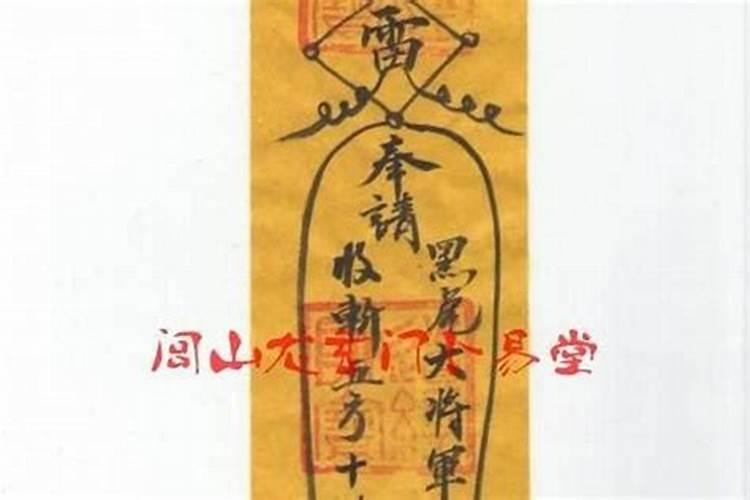 雷
奉請
黑虎大將軍
收斬五方十
闾山 门 易堂